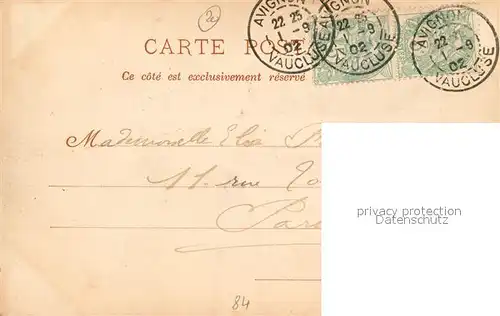 2
AVIGNON
22 25
1 - 9
02
VAUCLUSE
AVIGNON
22 25
1 - 9
02
VAUCLUSE
AVIGNON
22
1 - 9
02
VAUCLUSE
CARTE POST
Ce côté est exclusivement réservé
Mademoiselle
11. rue
Par
privacy protection
Datenschutz
84